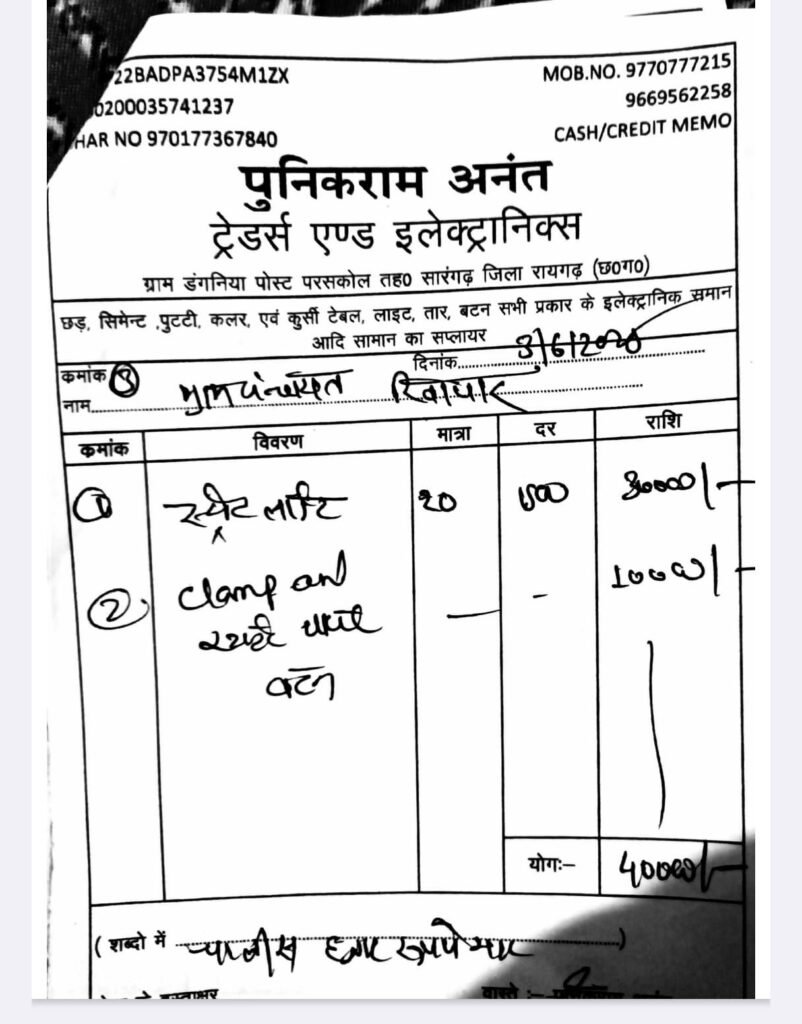 22BADPA3754M1ZX
MOB.NO. 9770777215
0200035741237
9669562258
HAR NO 970177367840
CASH/CREDIT MEMO
पुनिकराम अनंत
ट्रेडर्स एण्ड इलेक्ट्रानिक्स
ग्राम डंगनिया पोस्ट परसकोल तह0 सारंगढ़ जिला रायगढ़ (छ0ग0)
छड़, सिमेन्ट ,पुटटी, कलर, एवं कुर्सी टेबल, लाइट, तार, बटन सभी प्रकार के इलेक्ट्रानिक समान
आदि सामान का सप्लायर
कमांक दिनांक 3/6/2020
नाम
कमांक विवरण मात्रा दर राशि
① स्ट्रीट लाईट 20 1500 30000/-
② clamp and - - 10000/-
बटन
योगः- 40000/-
( शब्दो में चालीस हजार रूपये मात्र )
वास्ते :-